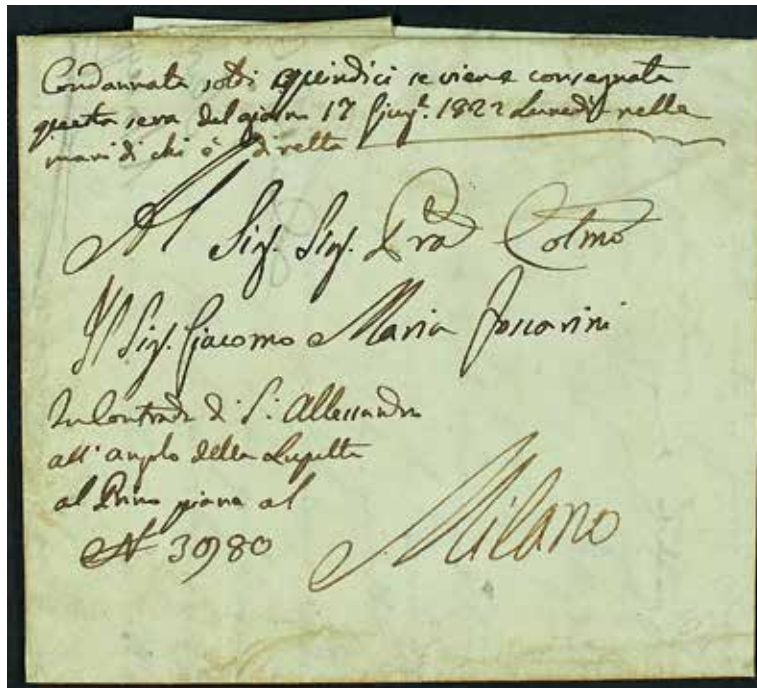 Condannata soldi quindici se viene consegnata
questa sera del giorno 17 Giug.º 1822 Lunedì nelle
mani di chi è diretta
Al Sig. Sig. Prõ Colmo
Il Sig. Giacomo Maria Foscarini
In Contrada di S. Allessandro
all'angolo della Lupetta
al Primo piano al
N 3980
Milano